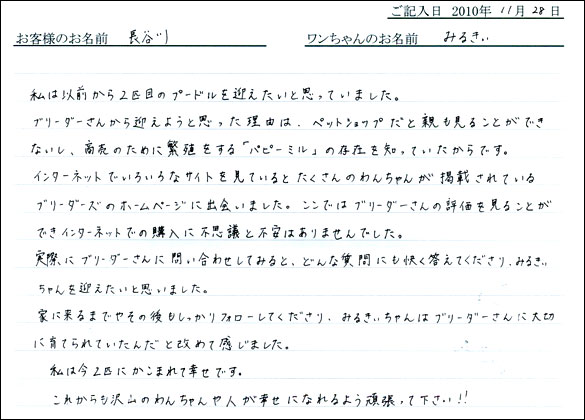 ご記入日 2010年 11月 28日
お客様のお名前 長谷川 ワンちゃんのお名前 みるきぃ
私は以前から2匹目のプードルを迎えたいと思っていました。
ブリーダーさんから迎えようと思った理由は、ペットショップだと親も見ることができ
ないし、商売のために繁殖をする「パピーミル」の存在を知っていたからです。
インターネットでいろいろなサイトを見ているとたくさんのわんちゃんが掲載されている
ブリーダーズのホームページに出会いました。ここではブリーダーさんの評価を見ることが
できインターネットでの購入に不思議と不安はありませんでした。
実際にブリーダーさんに問い合わせしてみると、どんな質問にも快く答えてくださり、みるきぃ
ちゃんを迎えたいと思いました。
家に来るまでやその後もしっかりフォローしてくださり、みるきぃちゃんはブリーダーさんに大切
に育てられていたんだと改めて感じました。
私は今2匹にかこまれて幸せです。
これからも沢山のわんちゃんや人が幸せになれるよう頑張って下さい!!